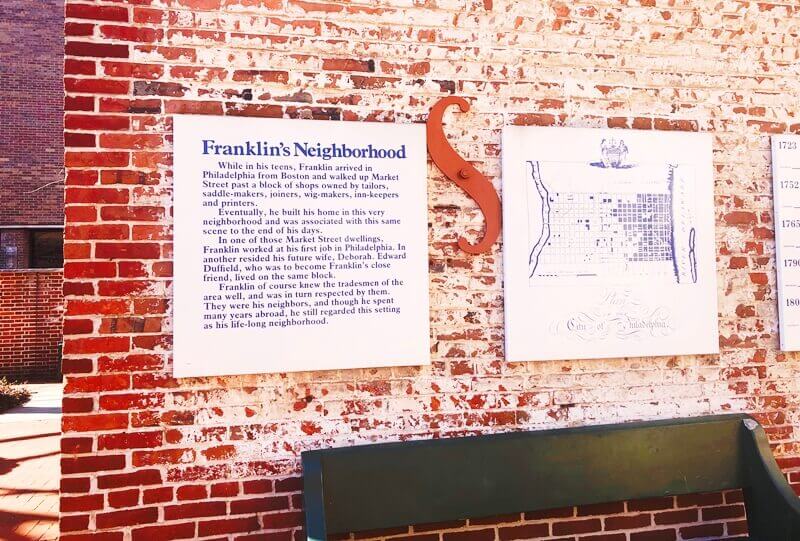 Franklin's Neighborhood
While in his teens, Franklin arrived in
Philadelphia from Boston and walked up Market
Street past a block of shops owned by tailors,
saddle-makers, joiners, wig-makers, inn-keepers
and printers.
Eventually, he built his home in this very
neighborhood and was associated with this same
scene to the end of his days.
In one of those Market Street dwellings,
Franklin worked at his first job in Philadelphia. In
another resided his future wife, Deborah. Edward
Duffield, who was to become Franklin's close
friend, lived on the same block.
Franklin of course knew the tradesmen of the
area well, and was in turn respected by them.
They were his neighbors, and though he spent
many years abroad, he still regarded this setting
as his life-long neighborhood.
Plan
City of Philadelphia
1723
1752
1765
1790
180